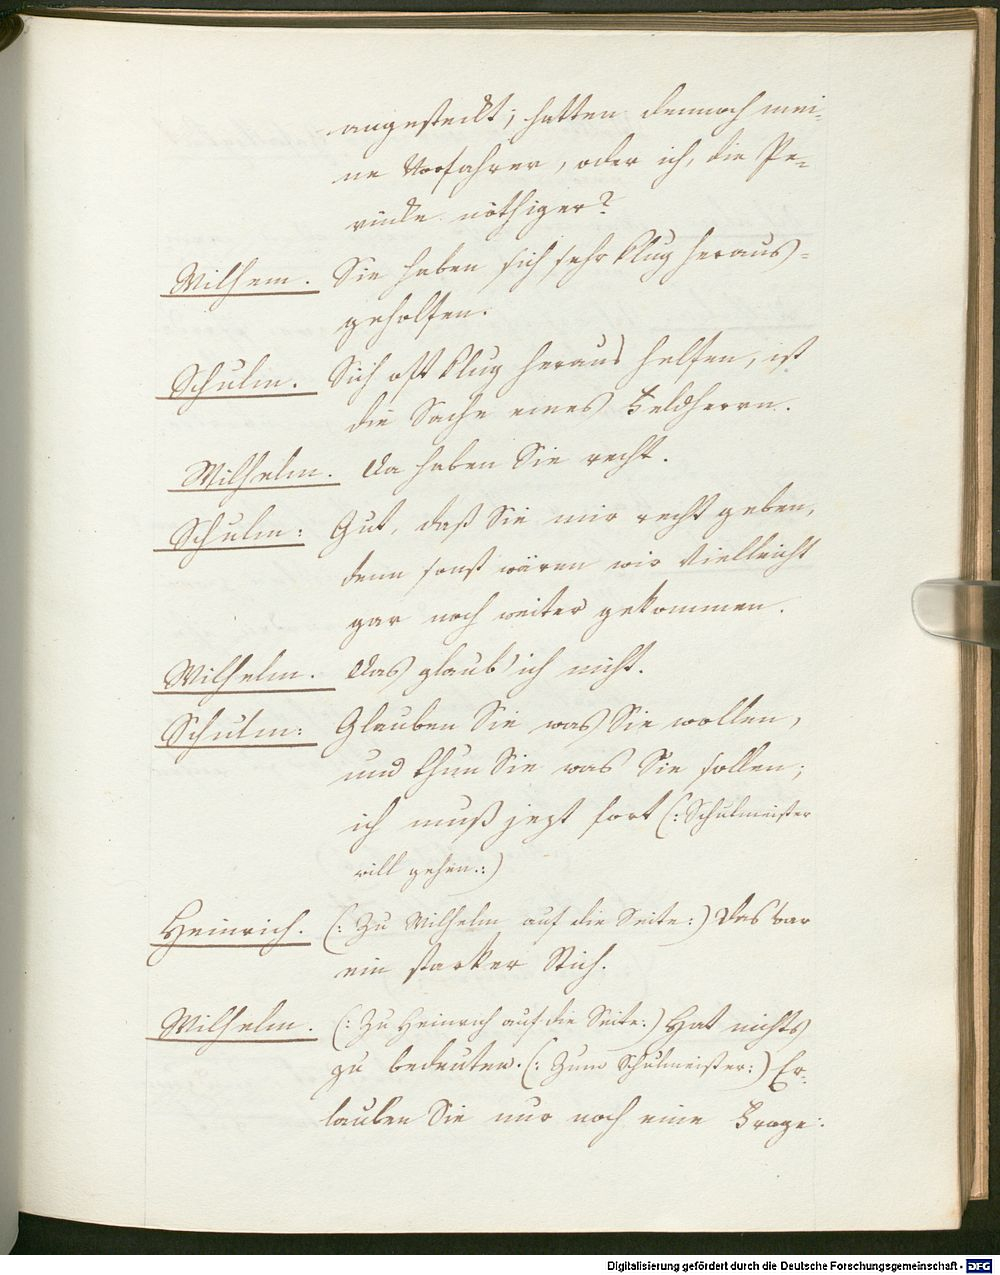 angesteckt; hatten dennoch mei-
ne Vorfahrer, oder ich, die Pe-
rücke nöthiger?
Wilhem. Sie haben sich sehr klug heraus-
geholfen.
Schulm. Sich oft klug heraus helfen, ist
die Sache eines Feldherrn.
Wilhelm. Da haben Sie recht.
Schulm: Gut, daß Sie mir recht geben,
denn sonst wären wir vielleicht
gar noch weiter gekommen.
Wilhelm. Das glaub' ich nicht.
Schulm: Glauben Sie was Sie wollen,
und thun Sie was Sie sollen;
ich muß jezt fort (: Schulmeister
will gehen.:)
Heinrich. (: Zu Wilhelm auf die Seite:) Das war
ein starker Stich.
Wilhelm. (: Zu Heinrich auf die Seite:) Hat nichts
zu bedeuten. (: Zum Schulmeister:) Er-
lauben Sie nur noch eine Frage:
Digitalisierung gefördert durch die Deutsche Forschungsgemeinschaft - DFG